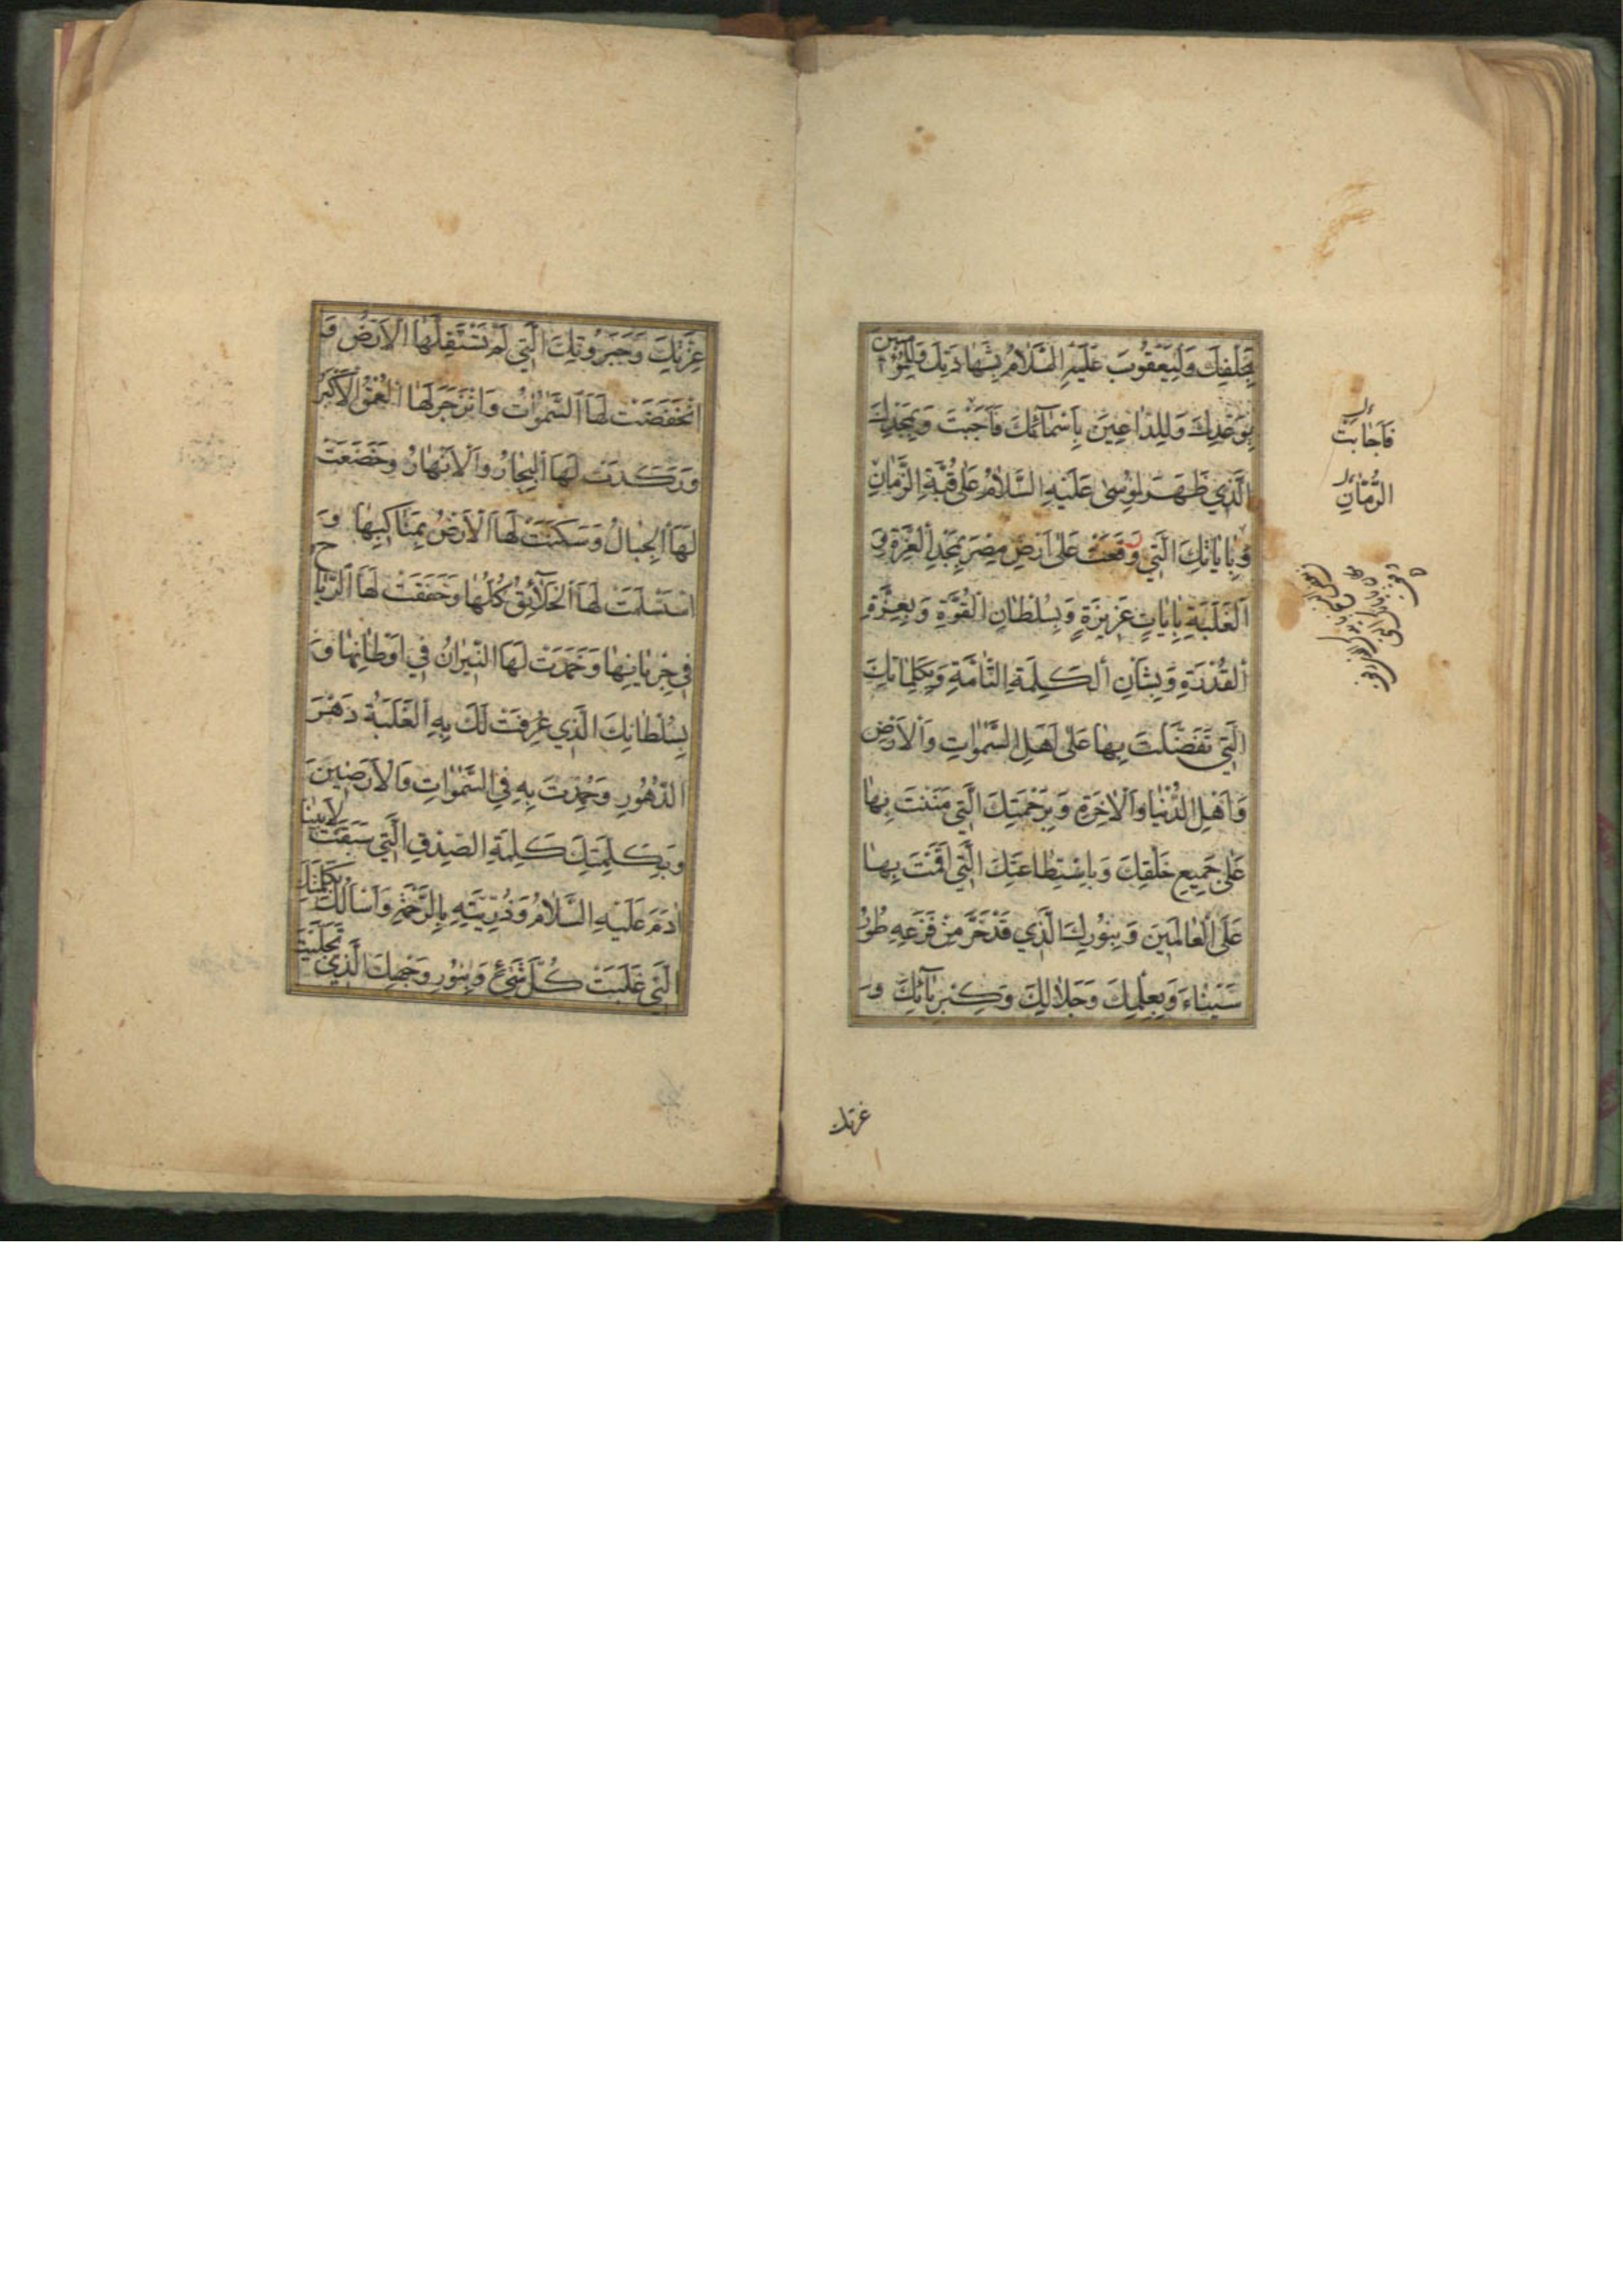 بِحَلْفِكَ وَلِيَعْقُوبَ عَلَيْهِ السَّلَامُ بِشَهَادَتِكَ وَلِلْمُؤْمِنِينَ
بِوَعْدِكَ وَلِلدَّاعِينَ بِأَسْمَائِكَ فَأَجَبْتَ وَبِمَجْدِكَ
الَّذِي ظَهَرَ لِمُوسَى عَلَيْهِ السَّلَامُ عَلَى قُبَّةِ الزَّمَانِ
وَبِآيَاتِكَ الَّتِي وَقَعَتْ عَلَى أَرْضِ مِصْرَ بِمَجْدِ الْعِزَّةِ وَ
الْغَلَبَةِ بِآيَاتٍ عَزِيزَةٍ وَبِسُلْطَانِ الْقُوَّةِ وَبِعِزَّةِ
الْقُدْرَةِ وَبِشَأْنِ الْكَلِمَةِ التَّامَّةِ وَبِكَلِمَاتِكَ
الَّتِي تَفَضَّلْتَ بِهَا عَلَى أَهْلِ السَّمٰوَاتِ وَالْأَرْضِ
وَأَهْلِ الدُّنْيَا وَالْآخِرَةِ وَبِرَحْمَتِكَ الَّتِي مَنَنْتَ بِهَا
عَلَى جَمِيعِ خَلْقِكَ وَبِاسْتِطَاعَتِكَ الَّتِي أَقَمْتَ بِهَا
عَلَى الْعَالَمِينَ وَبِنُورِكَ الَّذِي قَدْ خَرَّ مِنْ فَزَعِهِ طُورُ
سَيْنَاءَ وَبِعِلْمِكَ وَجَلَالِكَ وَكِبْرِيَائِكَ وَ
فَأَجَابَتْ
الرُّمَّانِ
عزتك
عِزَّتِكَ وَجَبَرُوتِكَ الَّتِي لَمْ تَسْتَقِلَّهَا الْأَرْضُ وَ
انْخَفَضَتْ لَهَا السَّمٰوَاتُ وَانْزَجَرَ لَهَا الْعُمْقُ الْأَكْبَرُ
وَرَكَدَتْ لَهَا الْبِحَارُ وَالْأَنْهَارُ وَخَضَعَتْ
لَهَا الْجِبَالُ وَسَكَنَتْ لَهَا الْأَرْضُ بِمَنَاكِبِهَا وَ
اسْتَسْلَمَتْ لَهَا الْخَلَائِقُ كُلُّهَا وَخَفَقَتْ لَهَا الرِّيَاحُ
فِي جَرَيَانِهَا وَخَمَدَتْ لَهَا النِّيرَانُ فِي أَوْطَانِهَا وَ
بِسُلْطَانِكَ الَّذِي عُرِفَتْ لَكَ بِهِ الْغَلَبَةُ دَهْرَ
الدُّهُورِ وَحُمِدْتَ بِهِ فِي السَّمٰوَاتِ وَالْأَرَضِينَ
وَبِكَلِمَتِكَ كَلِمَةِ الصِّدْقِ الَّتِي سَبَقَتْ لِأَبِينَا
آدَمَ عَلَيْهِ السَّلَامُ وَذُرِّيَّتِهِ بِالرَّحْمَةِ وَأَسْأَلُكَ بِكَلِمَتِكَ
الَّتِي غَلَبَتْ كُلَّ شَيْءٍ وَبِنُورِ وَجْهِكَ الَّذِي تَجَلَّيْتَ